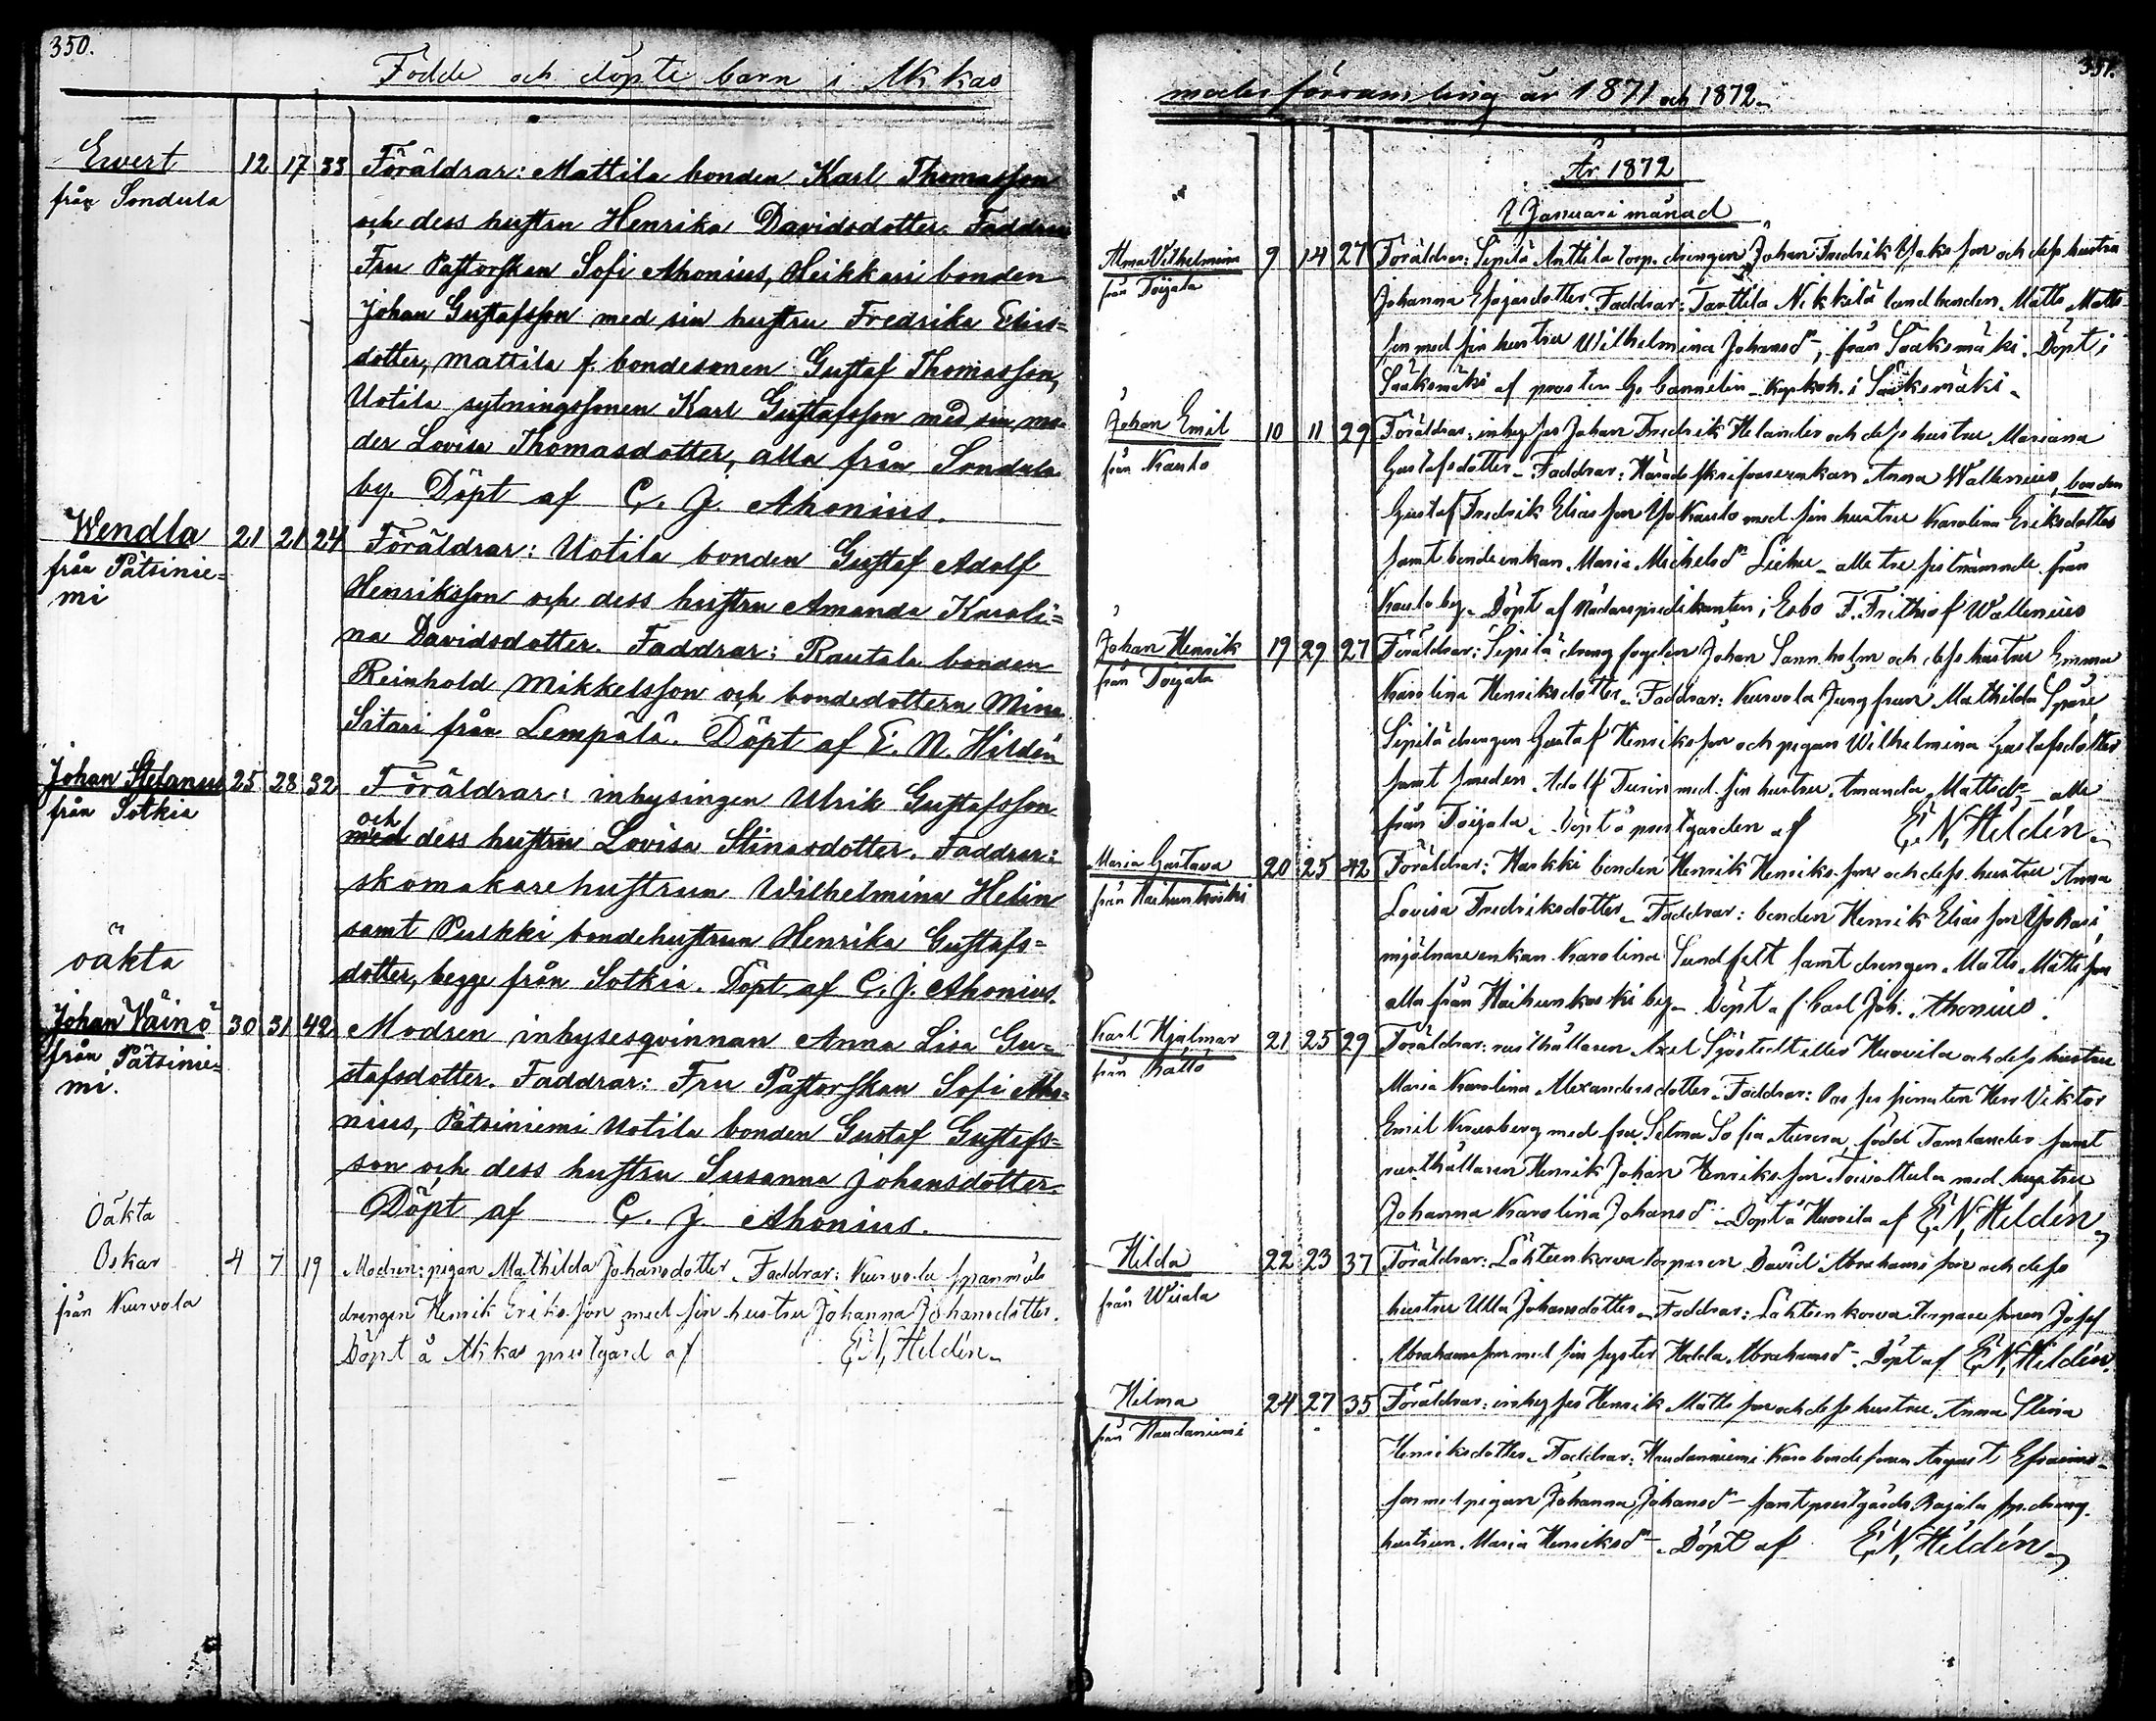 350.
Födde och döpte barn i Akkas
Ewert 12 17 33 Föräldrar: Mattila bonden Karl Thomasson
från Sondula
och dess hustru Henrika Davidsdotter. Faddrar
Fru Pastorskan Sofi Ahonius, Heikkari bonden
Johan Gustafsson med sin hustru Fredrika Elias=
dotter, Mattila f. bondesonen Gustaf Thomasson,
Uotila sytningssonen Karl Gustafsson med sin mo=
der Lovisa Thomasdotter, alla från Sondula
by. Döpt af C. J. Ahonius.
Wendla 21 21 24 Föräldrar: Uotila bonden Gustaf Adolf
från Pätsinie=
mi
Henriksson och dess hustru Amanda Karoli=
na Davidsdotter. Faddrar: Rautala bonden
Reinhold Mikkelsson och bondedottern Mina
Sitari från Lempälä. Döpt af E. N. Hildén
Johan Stefanus 25 28 32 Föräldrar: inhysingen Ulrik Gustafsson
från Sotkia
och
med dess hustru Lovisa Stinasdotter. Faddrar:
skomakarehustrun Wilhelmina Helin
samt Puskki bondehustrun Henrika Gustafs=
dotter, begge från Sotkia. Döpt af C. J. Ahonius.
oäkta
Johan Väinö 30 31 42 Modren inhysesqvinnan Anna Lisa Gu=
från Pätsinie=
mi.
stafsdotter. Faddrar: Fru Pastorskan Sofi Aho=
nius, Pätsiniemi Uotila bonden Gustaf Gustafs=
son och dess hustru Susanna Johansdotter.
Döpt af C. J. Ahonius.
Oäkta
Oskar 4 7 19 Modren: pigan Mathilda Johansdotter. Faddrar: Kurvola spanmåls
från Kurvola
drengen Henrik Eriksson med sin hustru Johanna Johansdotter.
Döpt å Akkas prestgård af E. N. Hildén
351.
moderförsamling år 1871 och 1872
År 1872
I Januari månad
Alma Vilhelmina 9 14 27 Föräldrar: Sipilä Anttila torp. drengen Johan Fredrik Isaksson och dess hustru
från Toijala
Johanna Esajasdotter. Faddrar: Tanttila Nikkilä landbonden Matts Matts
son med sin hustru Wilhelmina Johansdr, från Sääksmäki. Döpt i
Sääksmäki af prosten G. Cannelin kyrkoh. i Sääksmäki
Johan Emil 10 11 29 Föräldrar: inhyses Johan Fredrik Helander och dess hustru Mariana
från Kauto
Gustafsdotter. Faddrar: Häradsskrifvareenkan Anna Wallenius, bonden
Gustaf Fredrik Eliasson Yso Kauto med sin hustru Karolina Eriksdotter
samt bondeenkan Maria Michelsdr - alla tre sistnämnde från
Kauto by. Döpt af Nådårspredikanten i Esbo F. Frithiof Wallenius
Johan Henrik 19 29 27 Föräldrar: Sipilä drengfogden Johan Sannholm och dess hustru Emma
från Toijala
Karolina Henriksdotter. Faddrar: Kurvola Jungfrun Mathilda Spåre
Sipilä drengen Gustaf Henriksson och pigan Wilhelmina Gustafsdotter
samt smeden Adolf med sin hustru Amanda Mattsdr - alla
från Toijala. Döpt å prestgården af E. N. Hildén
Maria Gustava 20 25 42 Föräldrar: Harkki bonden Henrik Henriksson och dess hustru Anna
från Haihunkoski
Lovisa Fredriksdotter. Faddrar: bonden Henrik Eliasson Yso Rasi,
mjölnareenkan Karolina Sundfelt samt drengen Matts Mattsson
alla från Haihunkoski by. Döpt af Carl Joh. Ahonius.
Karl Hjalmar 21 25 29 Föräldrar: rusthållaren Axel Sjöstedt eller Huovila och dess hustru
från Kätlö
Maria Karolina Alexandersdotter. Faddrar: Herr Viktor
Emil Krusberg med fru Selma Sofia Aurora, född Tamlander samt
rusthållaren Henrik Johan Henriksson med hustru
Johanna Karolina Johansdr. Döpt å Huovila af E. N. Hildén
Hilda 22 23 37 Föräldrar: Lahteenkorva torparen David Abrahamsson och dess
från Wiiala
hustru Ulla Johansdotter. Faddrar: Lahteenkorva torparesonen Josef
Abrahamsson med sin syster Hedda Abrahamsdr. Döpt af E. N. Hildén.
Hilma 24 27 35 Föräldrar: inhyses Henrik Mattsson och dess hustru Anna Stina
från Haudaniemi
Henriksdotter. Faddrar: Haudanniemi Kara bondesonen August Efraims-
son med pigan Johanna Johansdr - samt prestgårds Rajala sp. dreng
hustrun Maria Henriksdr. Döpt af E. N. Hildén